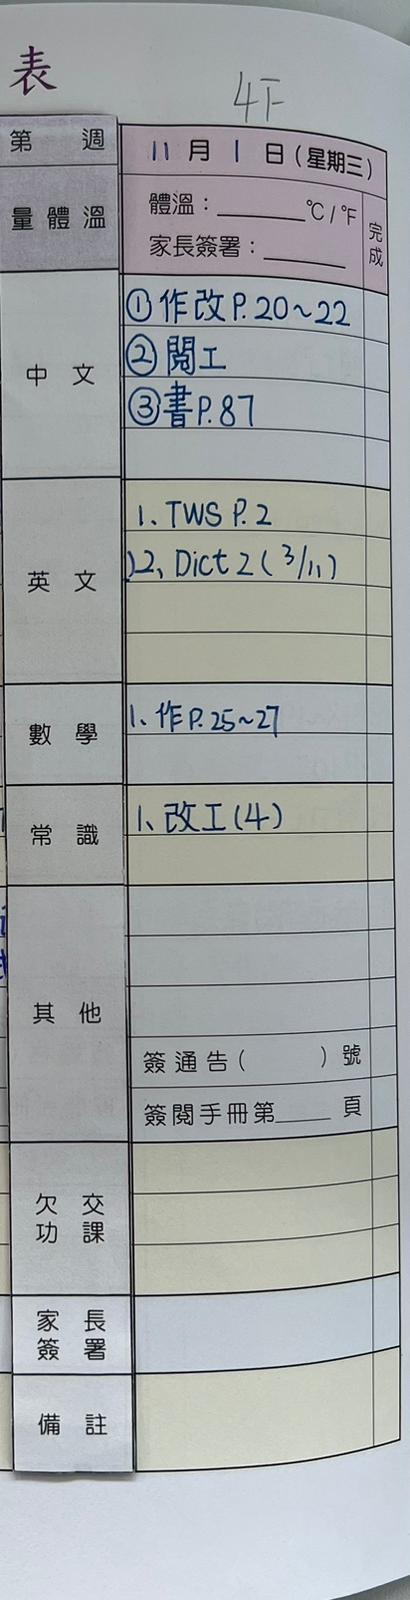 表
4F
第 週
11月1日(星期三)
量體溫
體溫：______℃/℉
家長簽署：______
完成
中文
①作改P.20~22
②閱工
③書P.87
英文
1、TWS P.2
2、Dict 2 (3/11)
數學
1、作P.25~27
常識
1、改工(4)
其他
簽通告( )號
簽閱手冊第____頁
欠交
功課
家長
簽署
備註